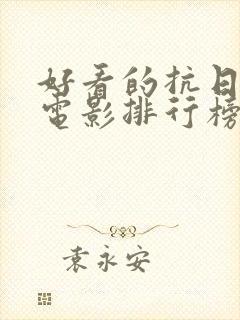 好看的抗日
电影排行榜
袁永安